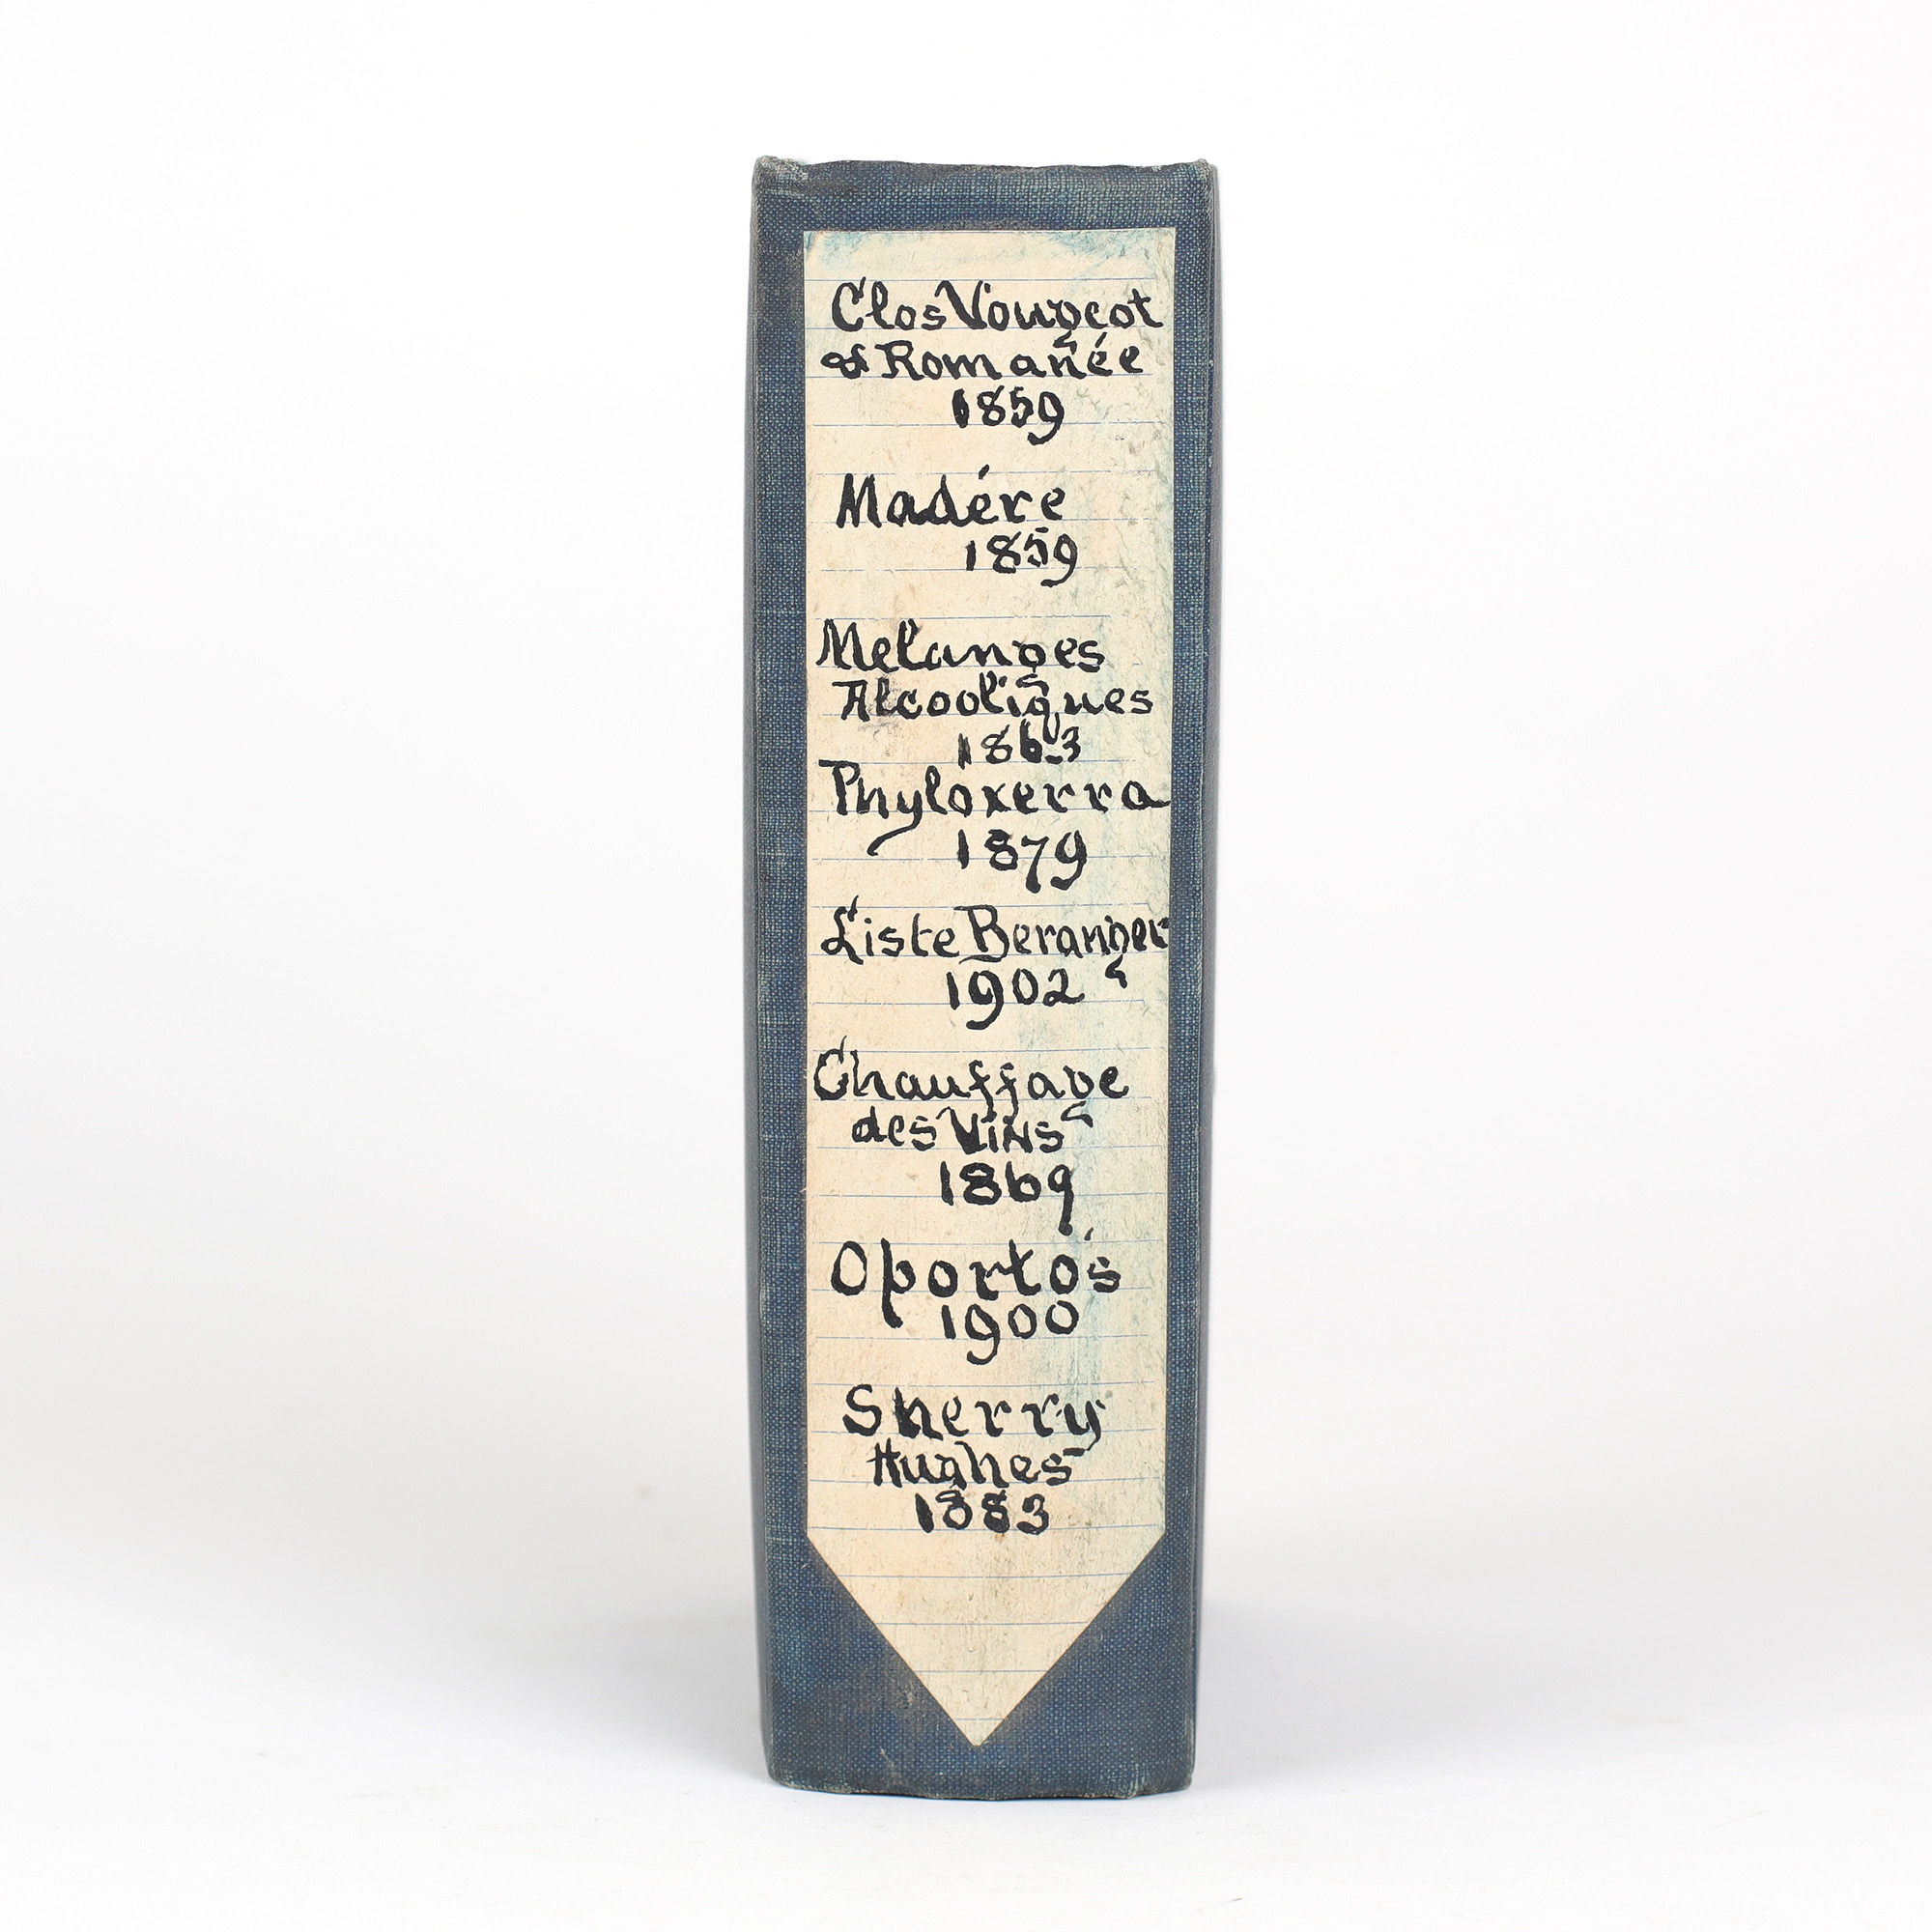 Clos Vougeot
& Romanée
1859
Madére
1859
Melanges
Alcooliques
1863
Phyloxerra
1879
Liste Beranger
1902
Chauffage
des Vins
1869
Oporto's
1900
Sherry
Hughes
1883